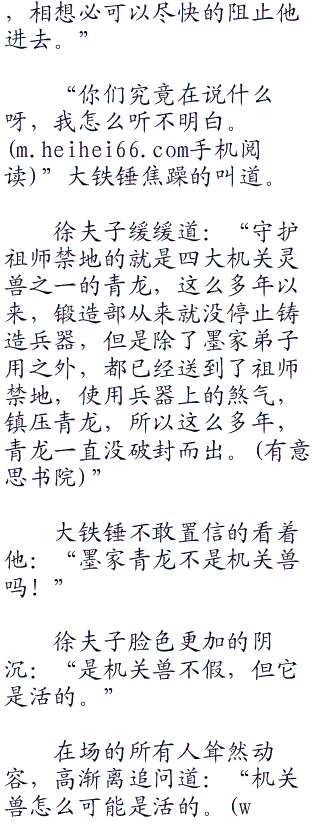 ，相想必可以尽快的阻止他
进去。”
“你们究竟在说什么
呀，我怎么听不明白。
(m.heihei66.com手机阅
读)”大铁锤焦躁的叫道。
徐夫子缓缓道：“守护
祖师禁地的就是四大机关灵
兽之一的青龙，这么多年以
来，锻造部从来就没停止铸
造兵器，但是除了墨家弟子
用之外，都已经送到了祖师
禁地，使用兵器上的煞气，
镇压青龙，所以这么多年，
青龙一直没破封而出。(有意
思书院)”
大铁锤不敢置信的看着
他：“墨家青龙不是机关兽
吗！”
徐夫子脸色更加的阴
沉：“是机关兽不假，但它
是活的。”
在场的所有人耸然动
容，高渐离追问道：“机关
兽怎么可能是活的。(w